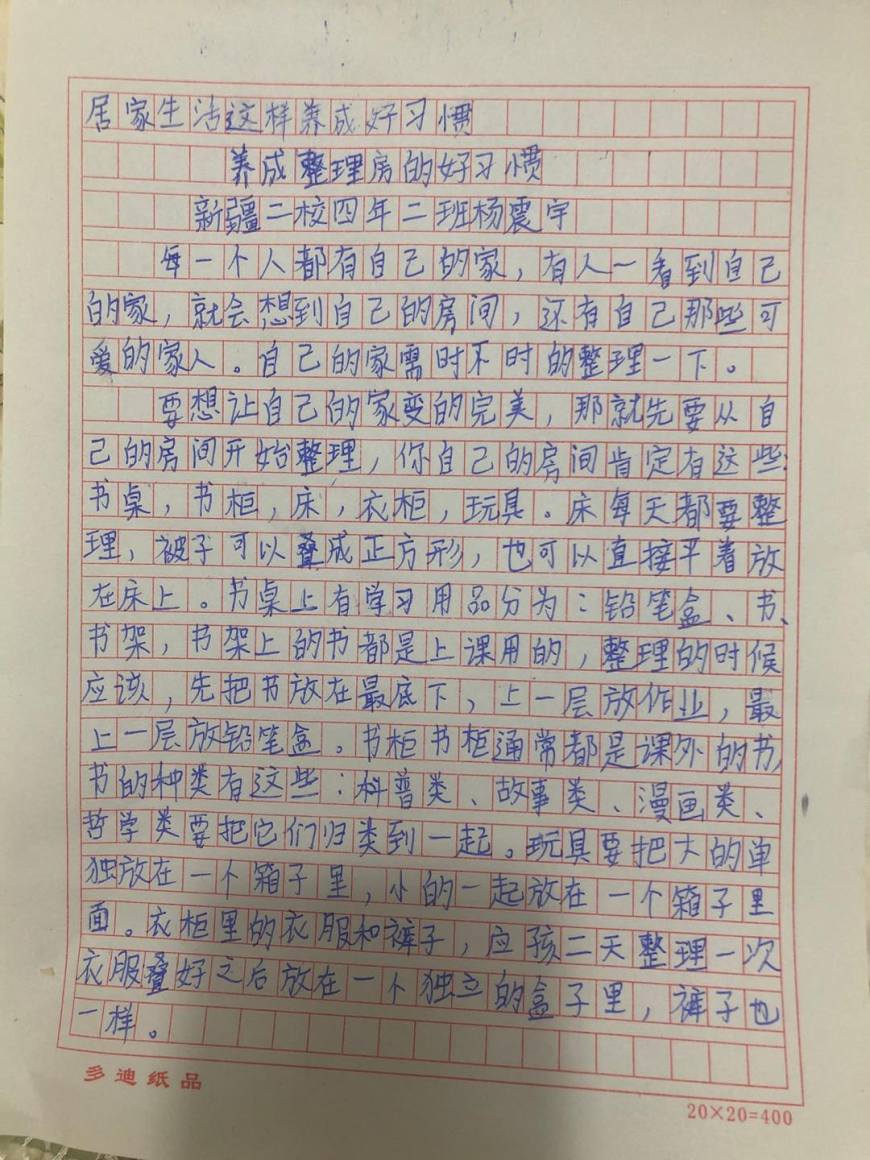 居家生活这样养成好习惯
养成整理房的好习惯
新疆二校四年二班杨震宇
每一个人都有自己的家，有人一看到自己
的家，就会想到自己的房间，还有自己那些可
爱的家人。自己的家需时不时的整理一下。
要想让自己的家变的完美，那就先要从自
己的房间开始整理，你自己的房间肯定有这些：
书桌，书柜，床，衣柜，玩具。床每天都要整
理，被子可以叠成正方形，也可以直接平着放
在床上。书桌上有学习用品分为：铅笔盒、书、
书架，书架上的书都是上课用的，整理的时候
应该，先把书放在最底下，上一层放作业，最
上一层放铅笔盒。书柜书柜通常都是课外的书，
书的种类有这些：科普类、故事类、漫画类、
哲学类要把它们归类到一起。玩具要把大的单
独放在一个箱子里，小的一起放在一个箱子里
面。衣柜里的衣服和裤子，应孩二天整理一次
衣服叠好之后放在一个独立的盒子里，裤子也
一样。
多迪纸品
20×20=400